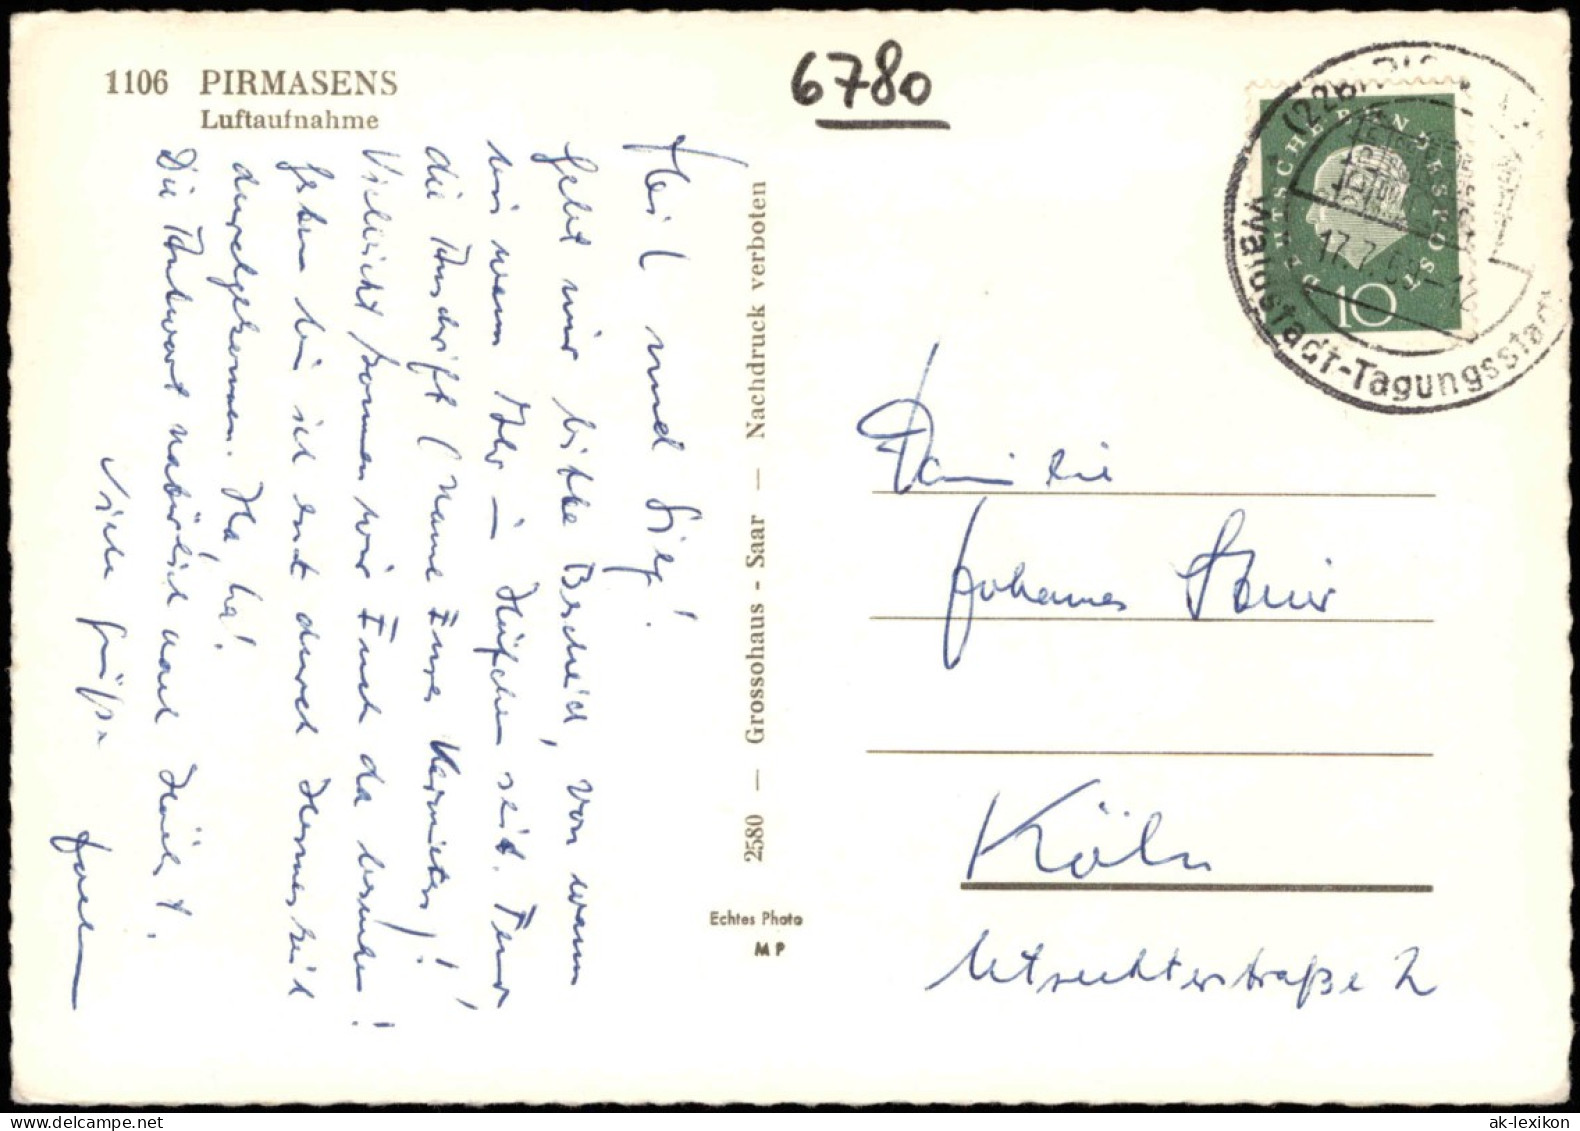 1106 PIRMASENS
Luftaufnahme
6780
Heil und Sieg!
Gebt mir bitte Bescheid, von wann
bis wann Ihr in seid. Ferner
die Anschrift (Name Eures Vermieters)!
Vielleicht kommen wir Euch da besuchen!
Gestern bin ich erst durch
durchgekommen. Ha ha!
Die Antwort natürlich nach
Viele Grüße
2580 — Grossohaus - Saar — Nachdruck verboten
Echtes Photo
MP
DEUTSCHE BUNDESPOST
10
17.7.59.-12
Waldstadt-Tagungsstadt
Familie
Johannes
Köln
Utrechterstraße 2
© ak-lexikon